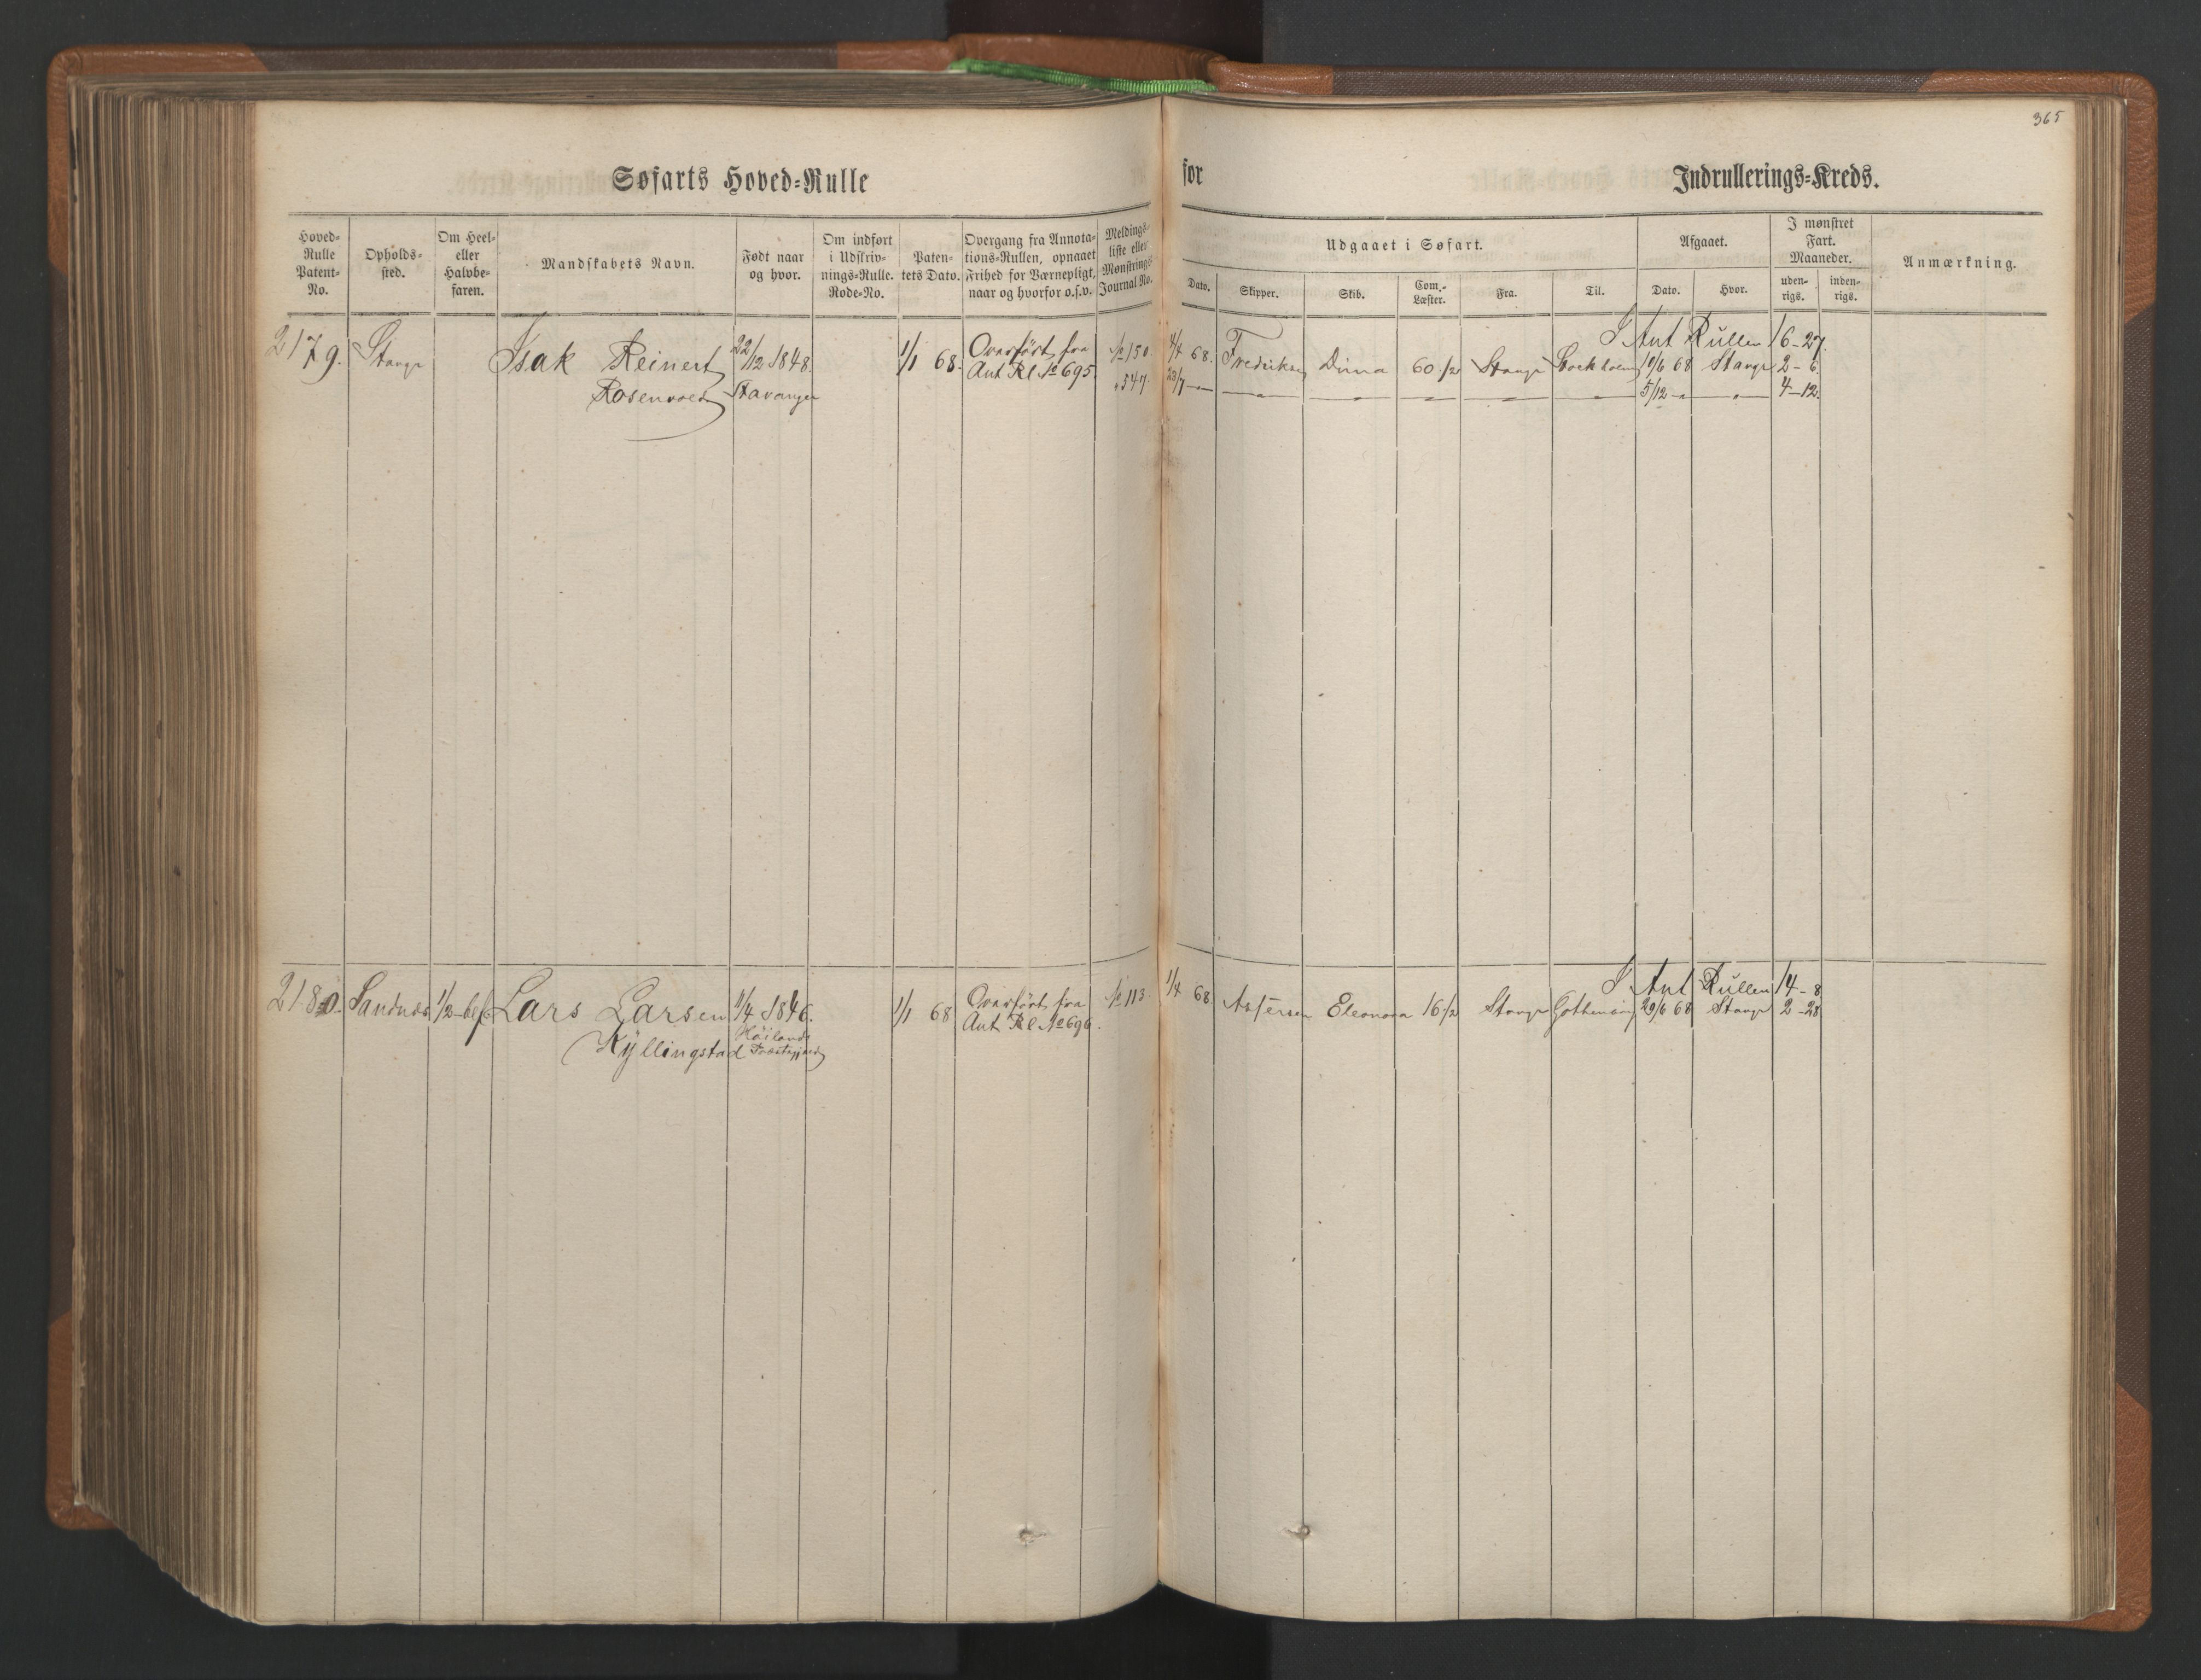 365
Søfarts Hoved-Rulle
for
Indrullerings-Kreds.
Hoved-
Rulle
Patent-
No.
Opholds-
sted.
Om Heel-
eller
Halvbe-
faren.
Mandskabets Navn.
Født naar
og hvor.
Om indført
i Udskriv-
nings-Rulle.
Rode-No.
Paten-
tets Dato.
Overgang fra Annota-
tions-Rullen, opnaaet
Frihed for Værnepligt,
naar og hvorfor o.s.v.
Meldings-
liste eller
Mønstrings-
Journal No.
Udgaaet i Søfart.
Dato.
Skipper.
Skib.
Com.-
Læster.
Fra.
Til.
Afgaaet.
Dato.
Hvor.
I mønstret
Fart.
Maaneder.
uden-
rigs.
inden-
rigs.
Anmærkning.
I Ant Rullen 16-27.
2179. Stavgr Isak Reinert 22/12 1848. 1/1 68. Overført fra No 150. 4/4 68. Fredriksen Dina 60 1/2 Stavgr Stockholm 10/6 68 Stavgr 2-6.
Rosenvold Stavanger Ant Rl. No 695. " 547. 23/7 — " — 5/12 — " — 4-12.
I Ant Rullen 14-8
2180. Sandnæs 1/2-bef. Lars Larsen 11/4 1846. 1/1 68 Overført fra No 113. 1/4 68 Eleonora 16 1/2 Stavgr Gothenborg 29/6 68 Stavgr 2-28
Kyllingstad Høilands Ant Rl No 696.
Præstegjeld